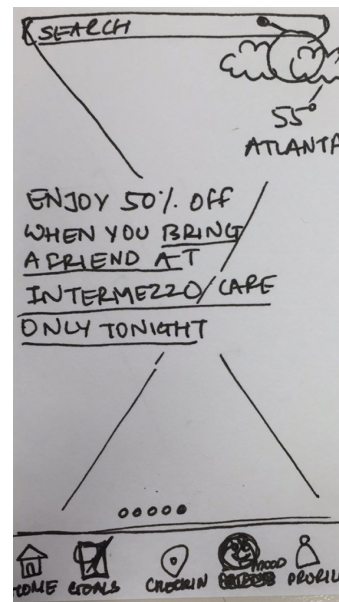 SEARCH
55°
ATLANTA
ENJOY 50% OFF
WHEN YOU BRING
A FRIEND AT
INTERMEZZO/CAFE
ONLY TONIGHT
HOME GOALS CHECKIN MOOD PROFIL